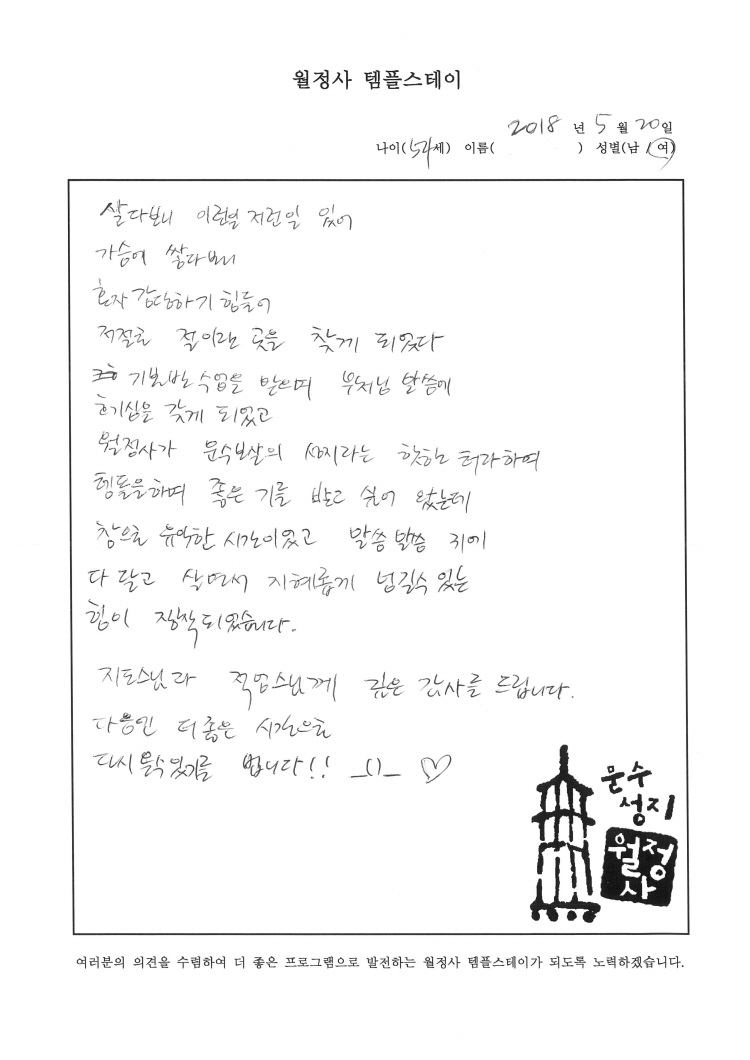 월정사 템플스테이
2018 년 5 월 20일
나이(52세) 이름( ) 성별(남 / 여)
살다보니 이런일 저런일 있어
가슴에 쌓다보니
혼자 감당하기 힘들어
저절로 절이라는 곳을 찾게 되었다
기본반 수업을 받으며 부처님 말씀에
호기심을 갖게 되었고
월정사가 문수보살의 성지라는 핫한 하여
템플을하며 좋은 기를 받고 싶어 왔는데
참으로 유익한 시간이였고 말씀 말씀 귀에
다 담고 살면서 지혜롭게 넘길수 있는
힘이 장착되었습니다.
지도스님과 스님께 깊은 감사를 드립니다.
다음엔 더 좋은 시간으로
다시 뵐수 있기를 빕니다!! _()_ ♡
문수
성지
월정
사
여러분의 의견을 수렴하여 더 좋은 프로그램으로 발전하는 월정사 템플스테이가 되도록 노력하겠습니다.